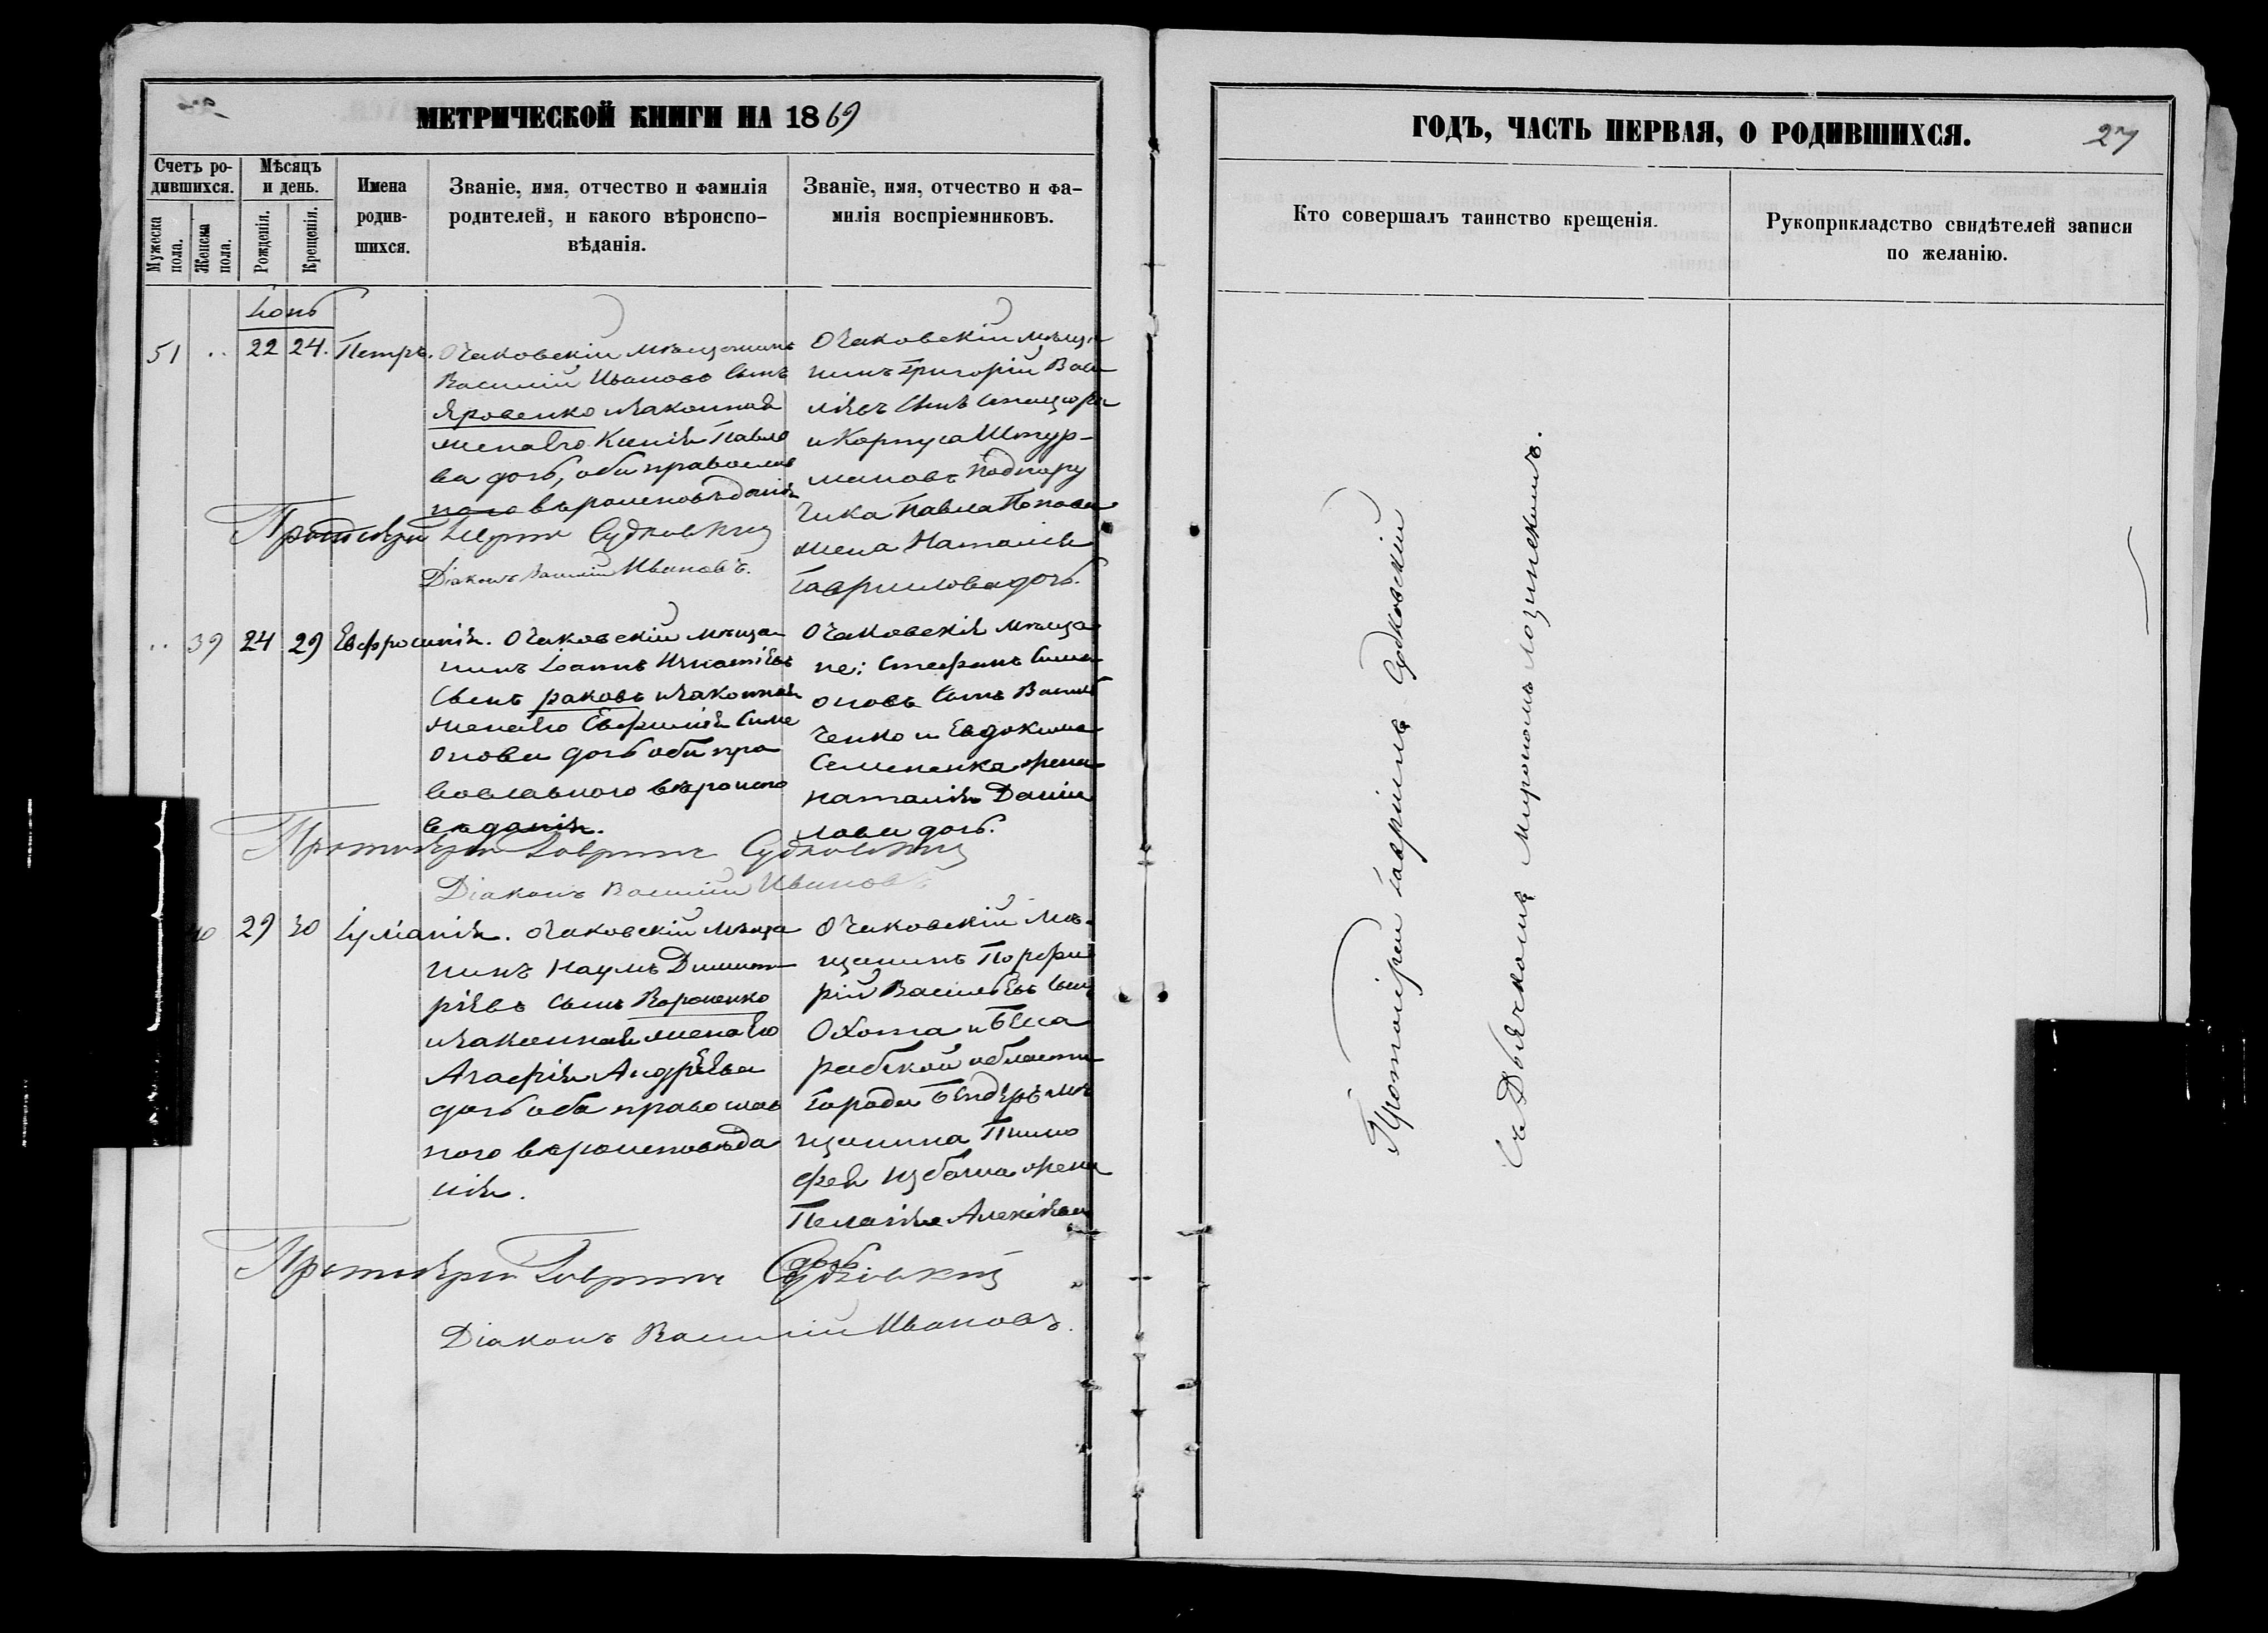 МЕТРИЧЕСКОЙ КНИГИ НА 1869
Счетъ ро-
дившихся.
Мужеска
пола.
Женска
пола.
Мѣсяцъ
и день.
Рожденія.
Крещенія.
Имена
родив-
шихся.
Званіе, имя, отчество и фамилія
родителей, и какого вѣроиспо-
вѣданія.
Званіе, имя, отчество и фа-
милія воспріемниковъ.
Іюнь
51 .. 22 24. Петръ.
Очаковскій мѣщанинъ
Василій Ивановъ сынъ
Яровенко и законная
жена его Ксенія Павло
ва дочь, оба православ
наго вѣроисповѣданія
Очаковскій мѣща
нинъ Григорій Васи
ліевъ сынъ
и Корпуса Штур-
мановъ Подпору
чика Павла Попова
жена Наталія
Гаврилова дочь.
Протоіерей Гавріилъ Судковскій
Діаконъ Василій Ивановъ.
.. 39 24 29 Евфросинія.
Очаковскій мѣща
нинъ Іоаннъ Игнатіевъ
сынъ Раковъ и законная
жена его Евфимія Симе
онова дочь оба пра
вославного вѣроиспо
вѣданія.
Очаковскія мѣща
не: Стефанъ Симе
оновъ сынъ Василь
ченко и Евдокима
Семененка жена
Наталія Даніи
лова дочь.
Протоіерей Гавріилъ Судковскій
Діаконъ Василій Ивановъ
40 29 30 Іуліанія.
Очаковскій мѣща
нинъ Наумъ Димит
ріевъ сынъ Вороненко
и законная жена его
Агафія Андреева
дочь оба православ
ного вѣроисповѣда
нія.
Очаковскій мѣ-
щанинъ Порфи
рій Васильевъ сынъ
Охота и Бесса
рабской области
города Бендеръ мѣ
щанина Тимо
фея Избаша жена
Пелагія Алексіева
дочь
Протоіерей Гавріилъ Судковскій
Діаконъ Василій Ивановъ.
ГОДЪ, ЧАСТЬ ПЕРВАЯ, О РОДИВШИХСЯ.
27
Кто совершалъ таинство крещенія.
Рукоприкладство свидѣтелей записи
по желанію.
Протоіерей Гавріилъ Судковскій
Съ Дьячкомъ Мирономъ Лозинскимъ.